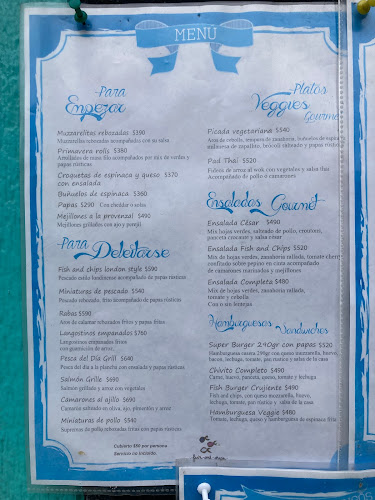 MENU
Para
Empezar
Muzzarelitas rebosadas $390
Muzzarelitas rebosadas acompañadas con su salsa
Primavera rolls $380
Arrollados de masa filo acompañados por mix de verdes y
papas rústicas
Croquetas de espinaca y queso $370
con ensalada
Buñuelos de espinaca $360
Papas $290 Con cheddar o salsa
Mejillones a la provenzal $490
Mejillones grillados con ajo y perejil
Para
Deleitarse
Fish and chips london style $590
Pescado estilo londinense acompañado de papas rústicas
Miniaturas de pescado $540
Pescado rebosado, frito acompañado de papas rústicas
Rabas $590
Aros de calamar rebosados fritos y papas fritas
Langostinos empanados $760
Langostinos empanados fritos
con guarnición de arroz
Pesca del Día Grill $640
Pesca del día a la plancha con ensalada y papas rústicas
Salmón Grille $690
Salmón grillado y arroz con vegetales
Camarones al ajillo $690
Camarón salteado en oliva, ajo, pimentón y arroz
Miniaturas de pollo $540
Supremas de pollo rebosadas fritas con papas rústicas
Cubierto $50 por persona
Servicio no incluido
Platos
Veggies
Gourmet
Picada vegetariana $540
Aros de cebolla, tempura de zanahoria, buñuelos de espinaca
milanesa de zapallito, brócoli salteado y papas rústicas
Pad Thai $520
Fideos de arroz al wok con vegetales y salsa thai
Acompañado de pollo ó camarones
Ensaladas Gourmet
Ensalada César $490
Mix hojas verdes, salteado de pollo, crotones,
panceta crocante y salsa césar
Ensalada Fish and Chips $520
Mix de hojas verdes, zanahoria rallada, tomate cherry
confitado sobre pepino en cinta acompañado
de camarones marinados y mejillones
Ensalada Completa $480
Mix de hojas verdes, zanahoria rallada,
tomate y cebolla
Con o sin huevo
Hamburguesas Sandwiches
Super Burger 240gr con papas $520
Hamburguesa casera 240gr con queso muzzarella, huevo,
bacon, lechuga, tomate, pan rústico y salsa de la casa
Chivito Completo $490
Carne, huevo, panceta, queso, tomate y lechuga
Fish Burger Crujiente $490
Fish and chips, con queso muzzarella, huevo,
lechuga, tomate, pan rústico y salsa de la casa
Hamburguesa Veggie $480
Tomate, lechuga, queso y hamburguesa de espinaca frita
fish and chips